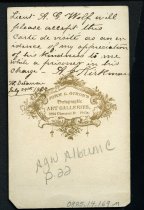 Lieut. A. G. Wolf will
please accept this
Carte de visite as an ev-
idence of my appreciation
of his kindness to me
while a prisoner in his
charge - A. J. Kirkman
Ft. Delaware
July 29th 1865
JOHN G.
Photographic
ART GALLERIES,
Chestnut St. Phila.
Album C
p. 22
OBAS.14.169